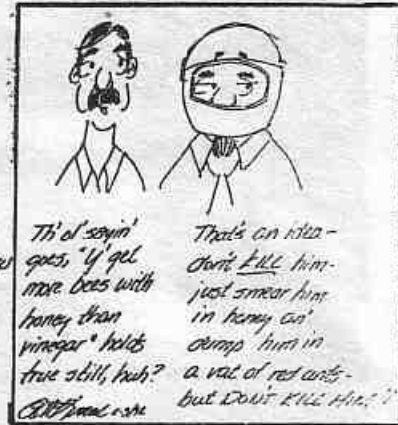 Th' ol' sayin'
goes, "Y' get
more bees with
honey than
vinegar" holds
true still, huh?
That's an idea-
don't KILL him-
just smear him
in honey an'
dump him in
a vat of red ants-
but DON'T KILL HIM!"